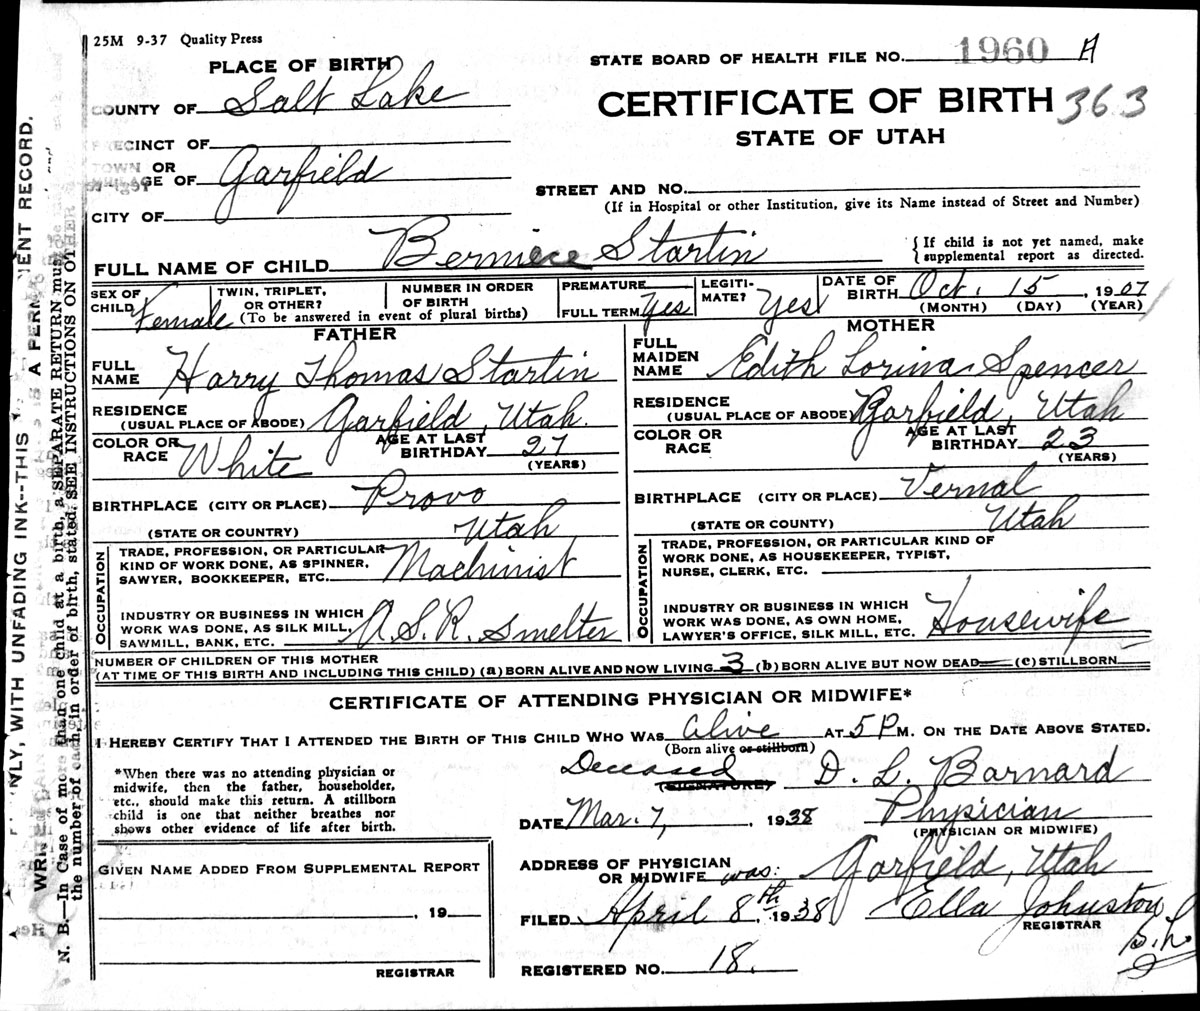 25M 9-37 Quality Press
STATE BOARD OF HEALTH FILE NO. 1960 A
PLACE OF BIRTH
COUNTY OF Salt Lake
CERTIFICATE OF BIRTH 363
STATE OF UTAH
PRECINCT OF
TOWN OR
VILLAGE OF Garfield
STREET AND NO.
(If in Hospital or other Institution, give its Name instead of Street and Number)
CITY OF
FULL NAME OF CHILD Berniece Startin
{ If child is not yet named, make
supplemental report as directed.
SEX OF
CHILD Female
TWIN, TRIPLET,
OR OTHER?
NUMBER IN ORDER
OF BIRTH
(To be answered in event of plural births)
PREMATURE
FULL TERM Yes
LEGITI-
MATE? Yes
DATE OF
BIRTH Oct. 15, 1907
(MONTH) (DAY) (YEAR)
FATHER
FULL
NAME Harry Thomas Startin
RESIDENCE
(USUAL PLACE OF ABODE) Garfield, Utah.
COLOR OR
RACE White
AGE AT LAST
BIRTHDAY 27
(YEARS)
BIRTHPLACE (CITY OR PLACE) Provo
(STATE OR COUNTRY) Utah
OCCUPATION
TRADE, PROFESSION, OR PARTICULAR
KIND OF WORK DONE, AS SPINNER,
SAWYER, BOOKKEEPER, ETC. Machinist
INDUSTRY OR BUSINESS IN WHICH
WORK WAS DONE, AS SILK MILL,
SAWMILL, BANK, ETC. A.S.R. Smelter
MOTHER
FULL
MAIDEN
NAME Edith Lorina Spencer
RESIDENCE
(USUAL PLACE OF ABODE) Garfield, Utah
COLOR OR
RACE
AGE AT LAST
BIRTHDAY 23
(YEARS)
BIRTHPLACE (CITY OR PLACE) Vernal
(STATE OR COUNTY) Utah
OCCUPATION
TRADE, PROFESSION, OR PARTICULAR KIND OF
WORK DONE, AS HOUSEKEEPER, TYPIST,
NURSE, CLERK, ETC.
INDUSTRY OR BUSINESS IN WHICH
WORK WAS DONE, AS OWN HOME,
LAWYER'S OFFICE, SILK MILL, ETC. Housewife
NUMBER OF CHILDREN OF THIS MOTHER
(AT TIME OF THIS BIRTH AND INCLUDING THIS CHILD) (a) BORN ALIVE AND NOW LIVING 3 (b) BORN ALIVE BUT NOW DEAD — (c) STILLBORN
CERTIFICATE OF ATTENDING PHYSICIAN OR MIDWIFE*
I HEREBY CERTIFY THAT I ATTENDED THE BIRTH OF THIS CHILD WHO WAS Alive AT 5 P M. ON THE DATE ABOVE STATED.
(Born alive or stillborn)
*When there was no attending physician or
midwife, then the father, householder,
etc., should make this return. A stillborn
child is one that neither breathes nor
shows other evidence of life after birth.
Deceased D. L. Barnard
(SIGNATURE)
DATE Mar. 7, 1938 Physician
(PHYSICIAN OR MIDWIFE)
GIVEN NAME ADDED FROM SUPPLEMENTAL REPORT
, 19
REGISTRAR
ADDRESS OF PHYSICIAN
OR MIDWIFE was: Garfield, Utah
FILED April 8th, 1938 Ella Johnston
REGISTRAR
S.L.
REGISTERED NO. 18.
N. B.—In Case of more than one child at a birth, a SEPARATE RETURN must
the number of each, in order of birth, stated. SEE INSTRUCTIONS ON OTHER
NLY, WITH UNFADING INK--THIS IS A PERM ENT RECORD.